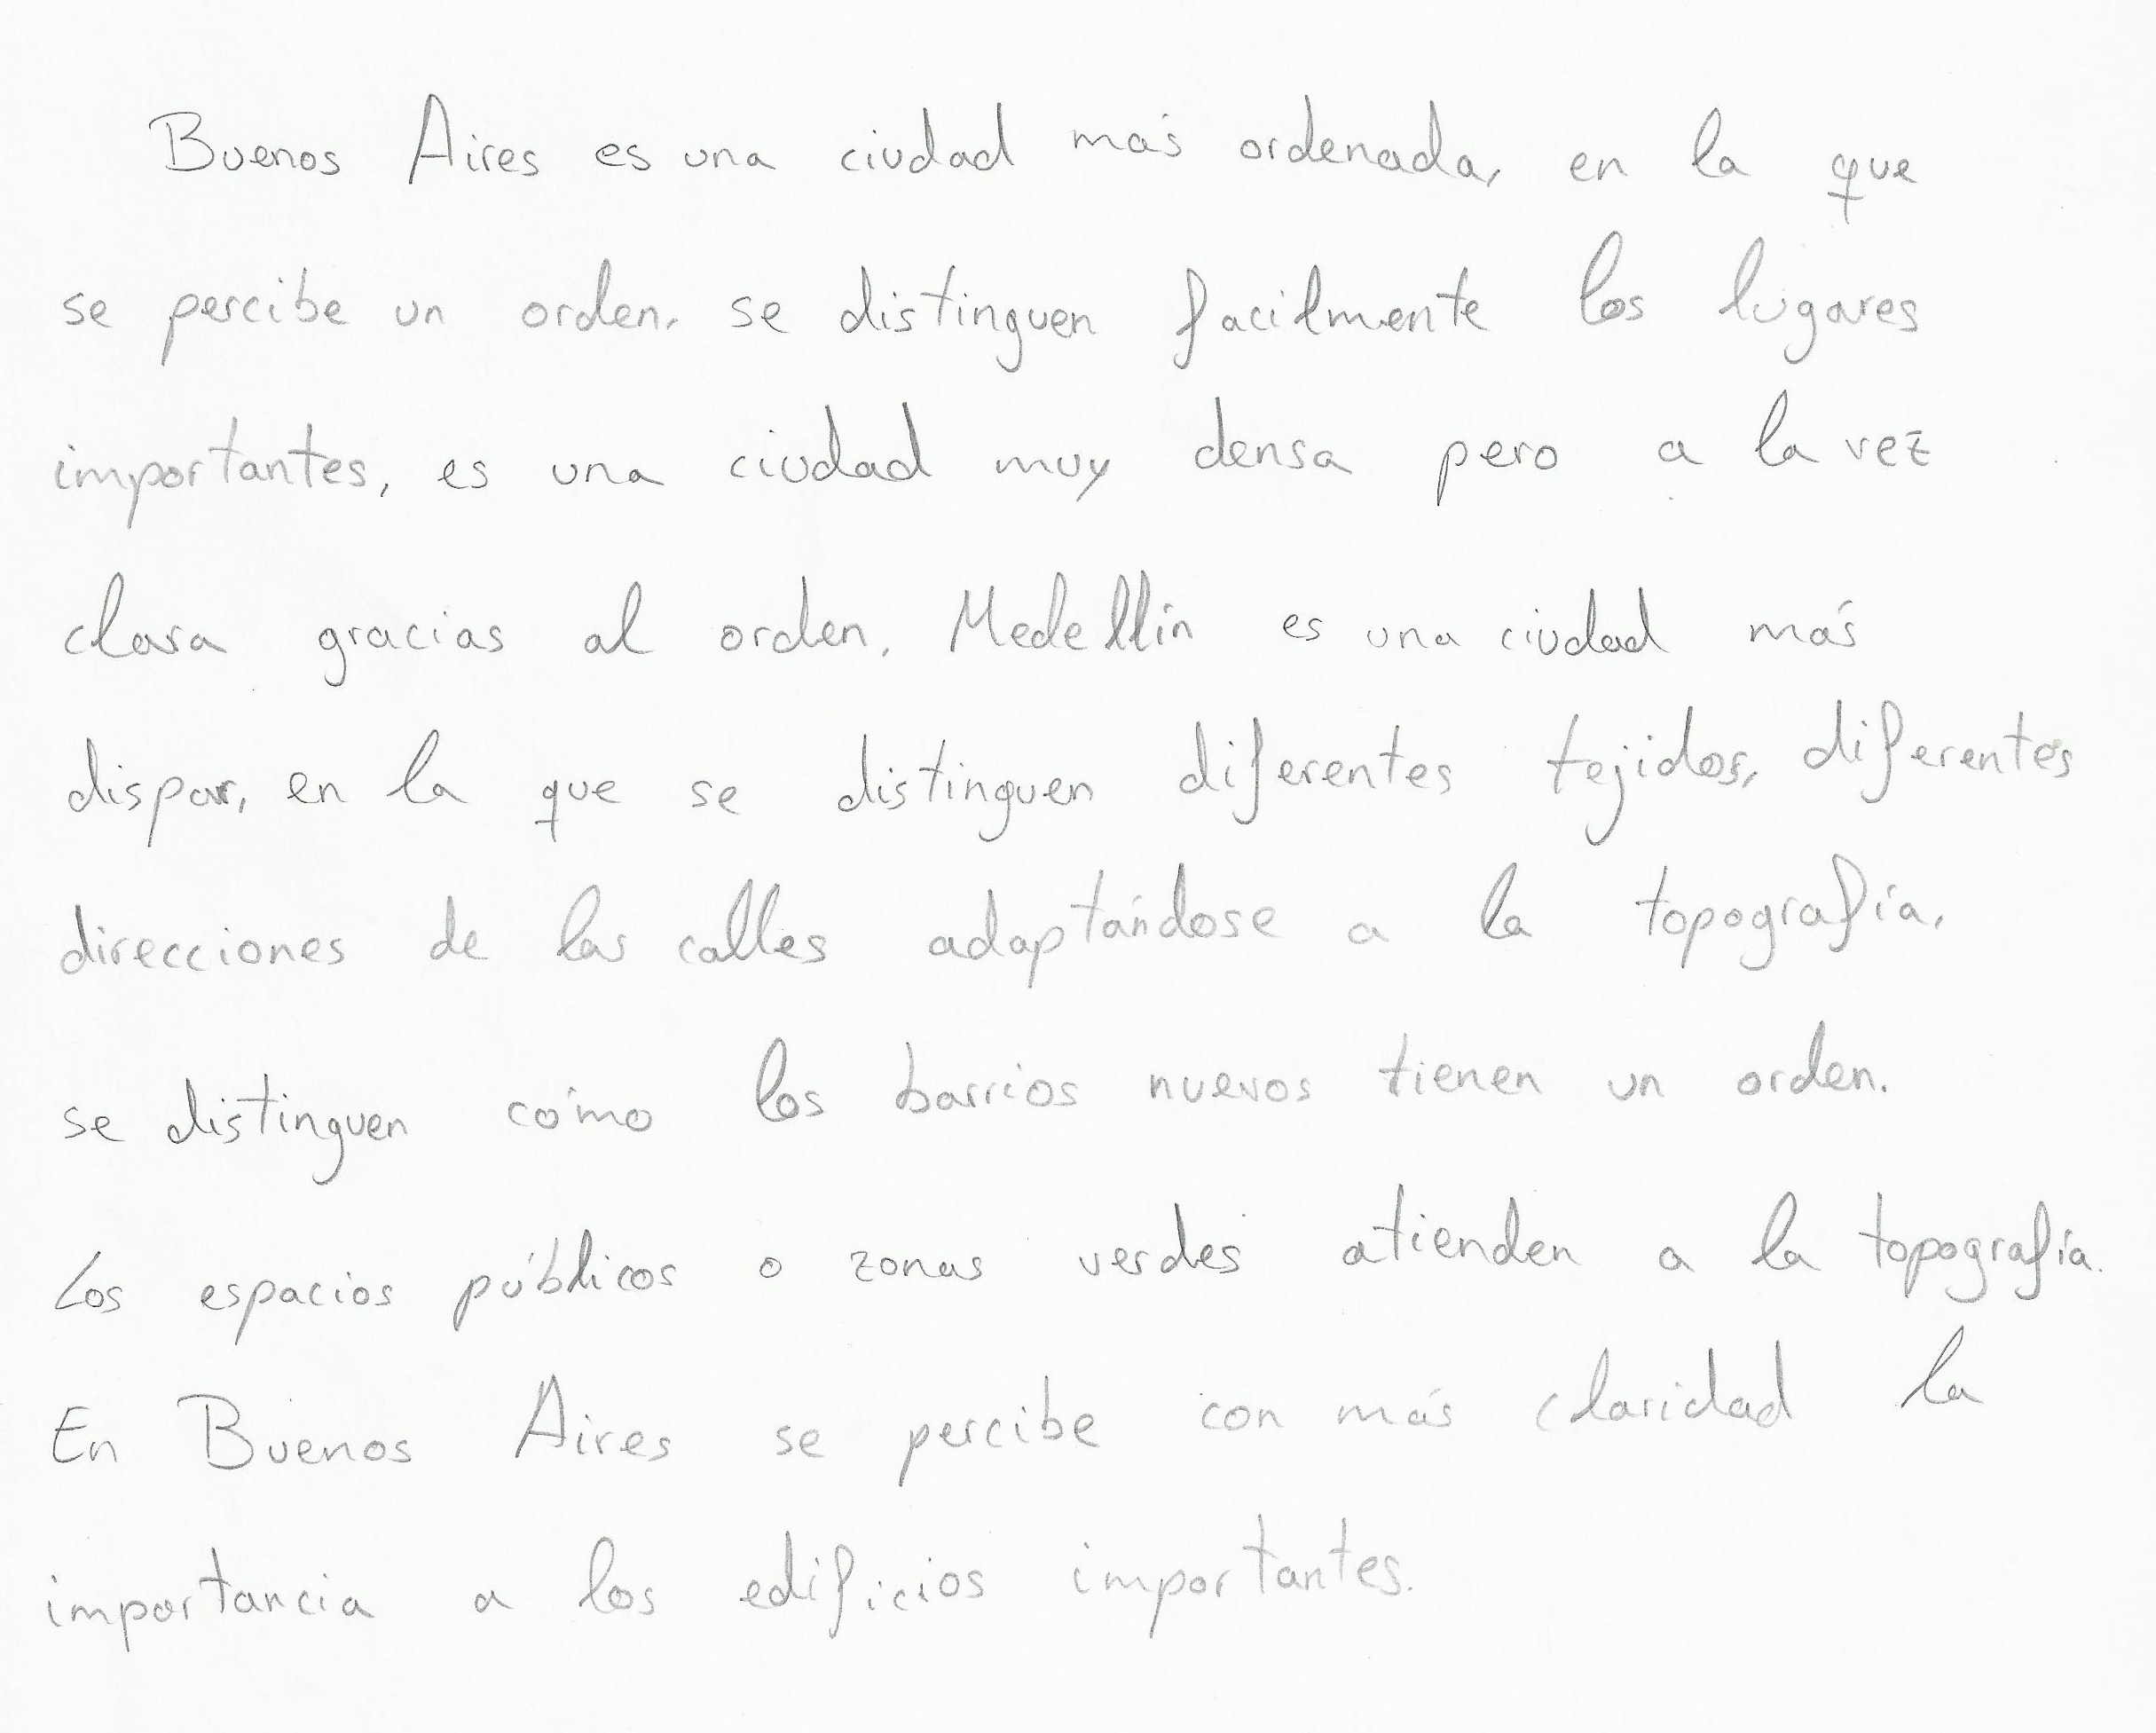 Buenos Aires es una ciudad más ordenada, en la que
se percibe un orden. se distinguen facilmente los lugares
importantes, es una ciudad muy densa pero a la vez
clara gracias al orden. Medellín es una ciudad más
dispar, en la que se distinguen diferentes tejidos, diferentes
direcciones de las calles adaptándose a la topografía.
se distinguen cómo los barrios nuevos tienen un orden.
Los espacios públicos o zonas verdes atienden a la topografía.
En Buenos Aires se percibe con más claridad la
importancia a los edificios importantes.